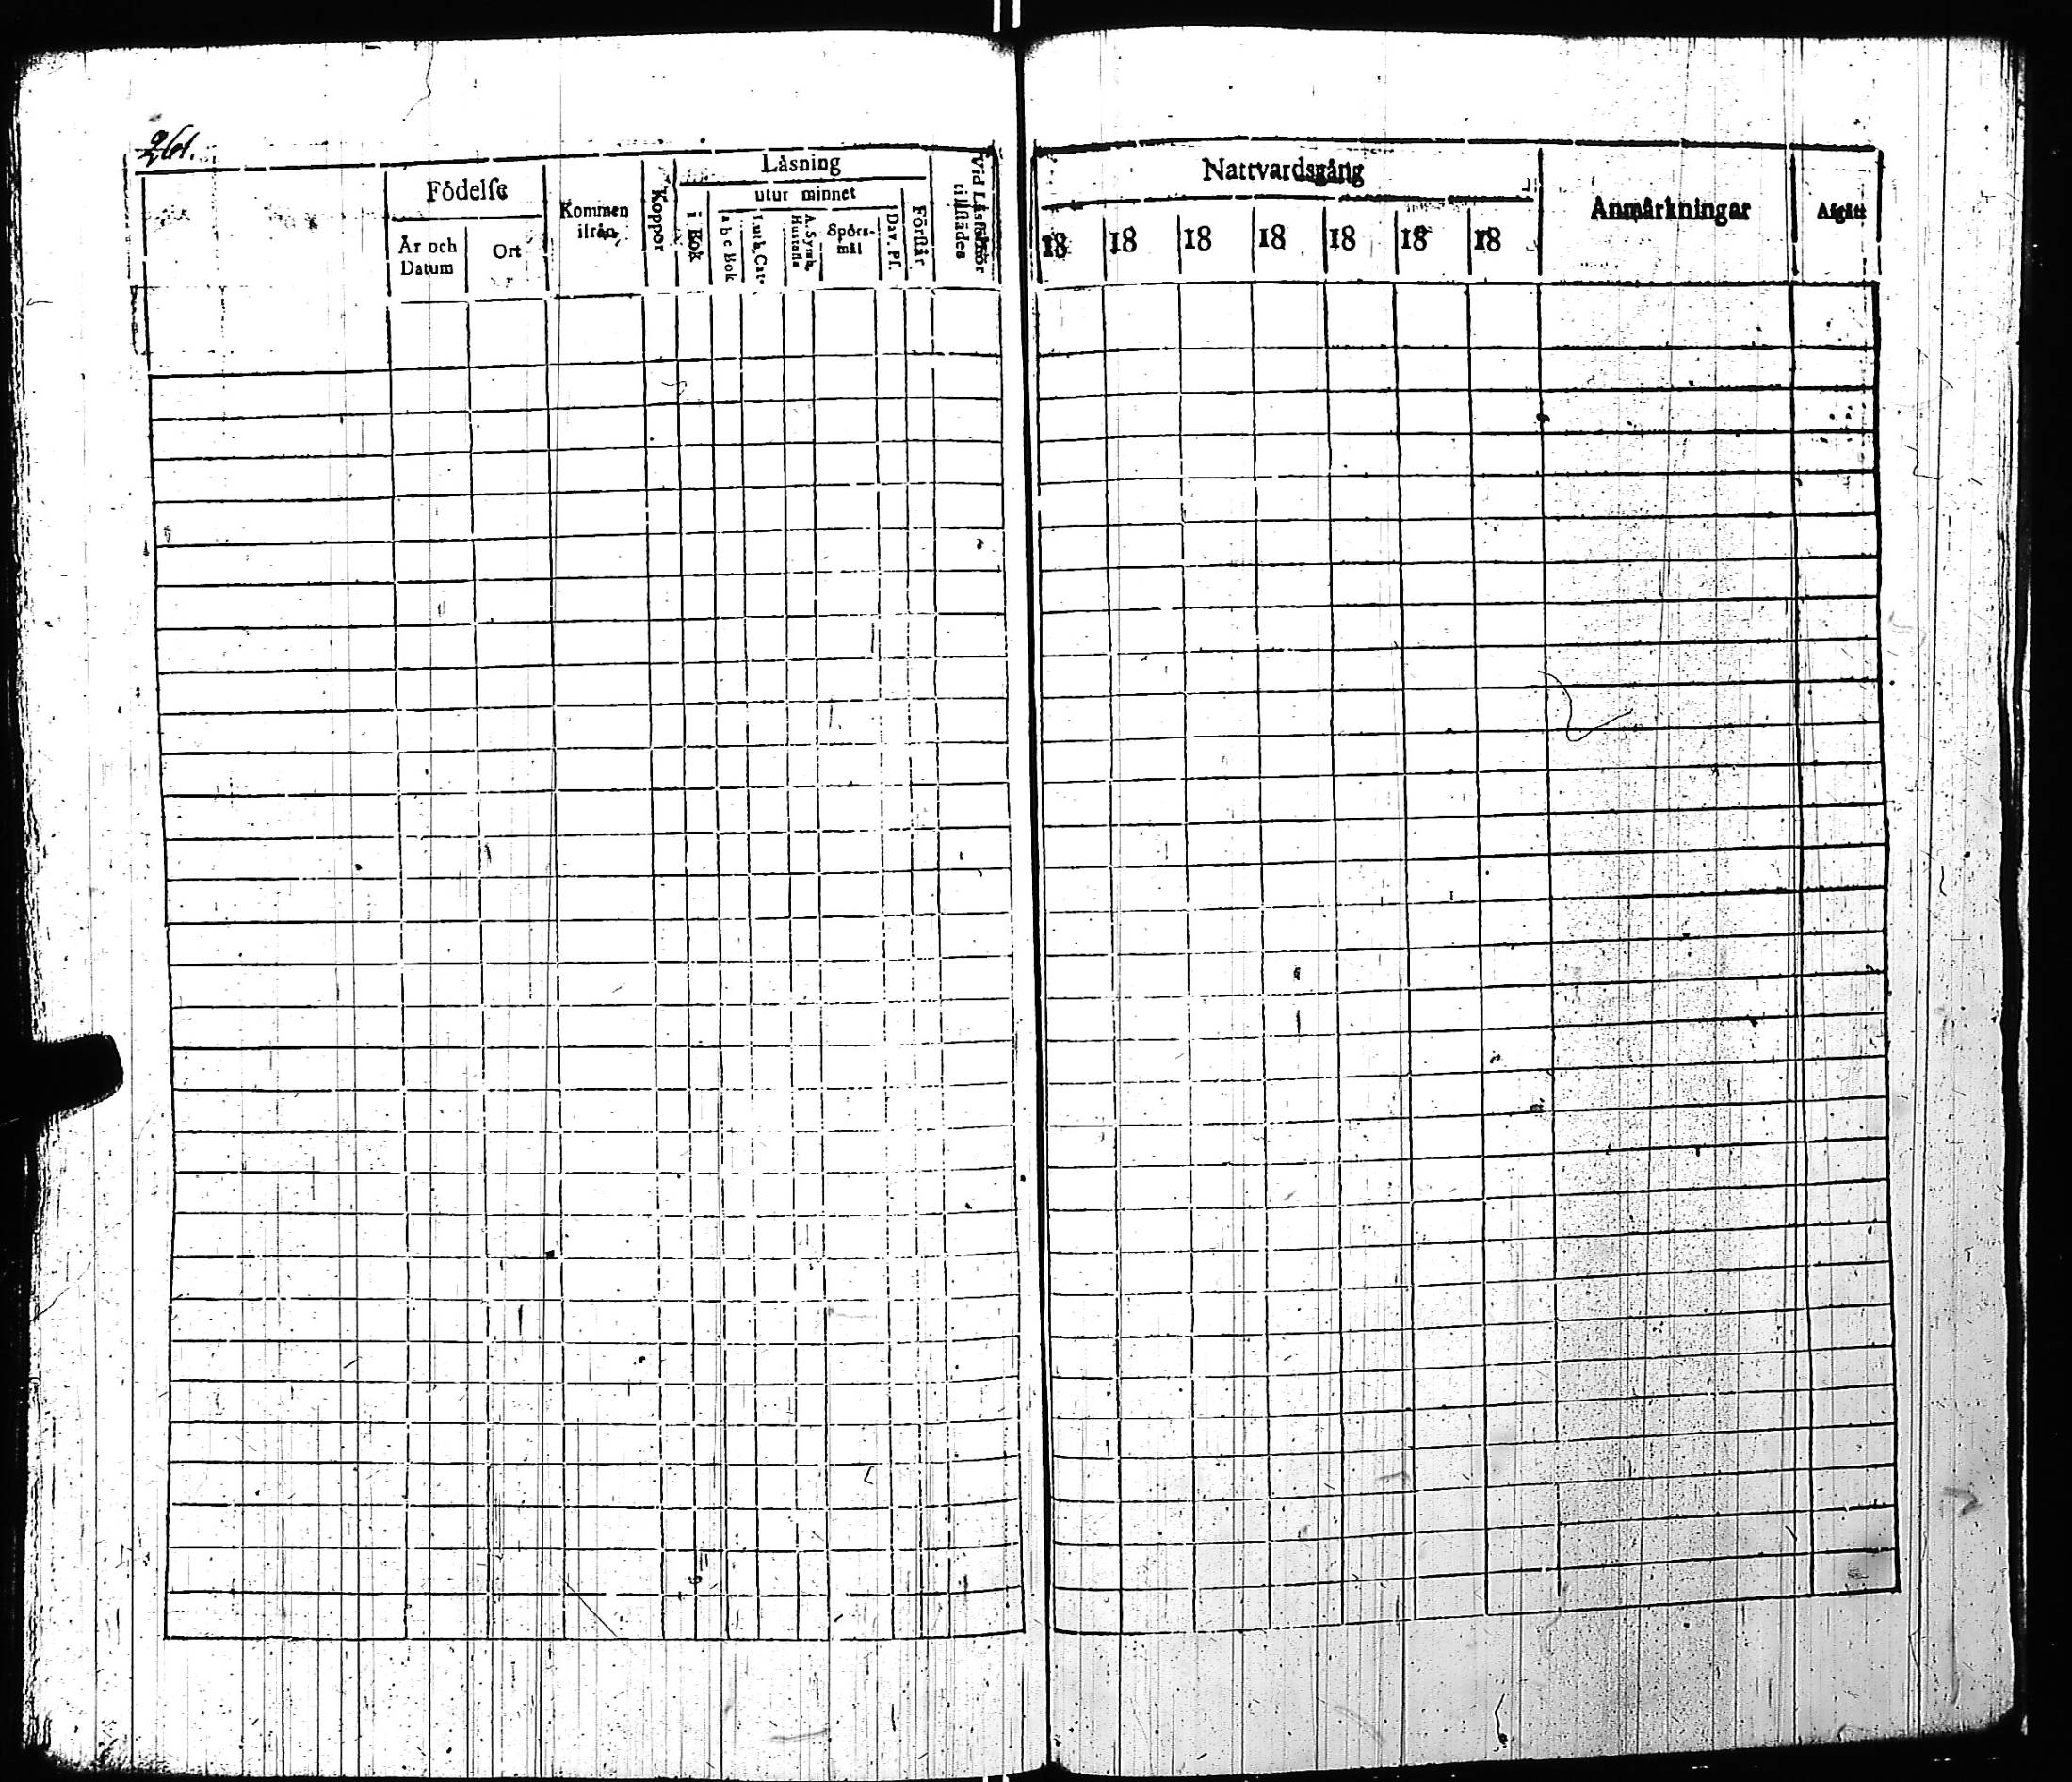 261.
Födelſe
År och
Datum
Ort
Kommen
ifrån
Koppor
Läsning
i Bok
utur minnet
a b c Bok
Luth. Cat.
A. Symb.
Hustafla
Spörs-
mål
Dav. Pſ.
Förſtår
Vid Läsförhör
tillſtädes
Nattvardsgång
18 18 18 18 18 18 18
Anmärkningar
Afgått